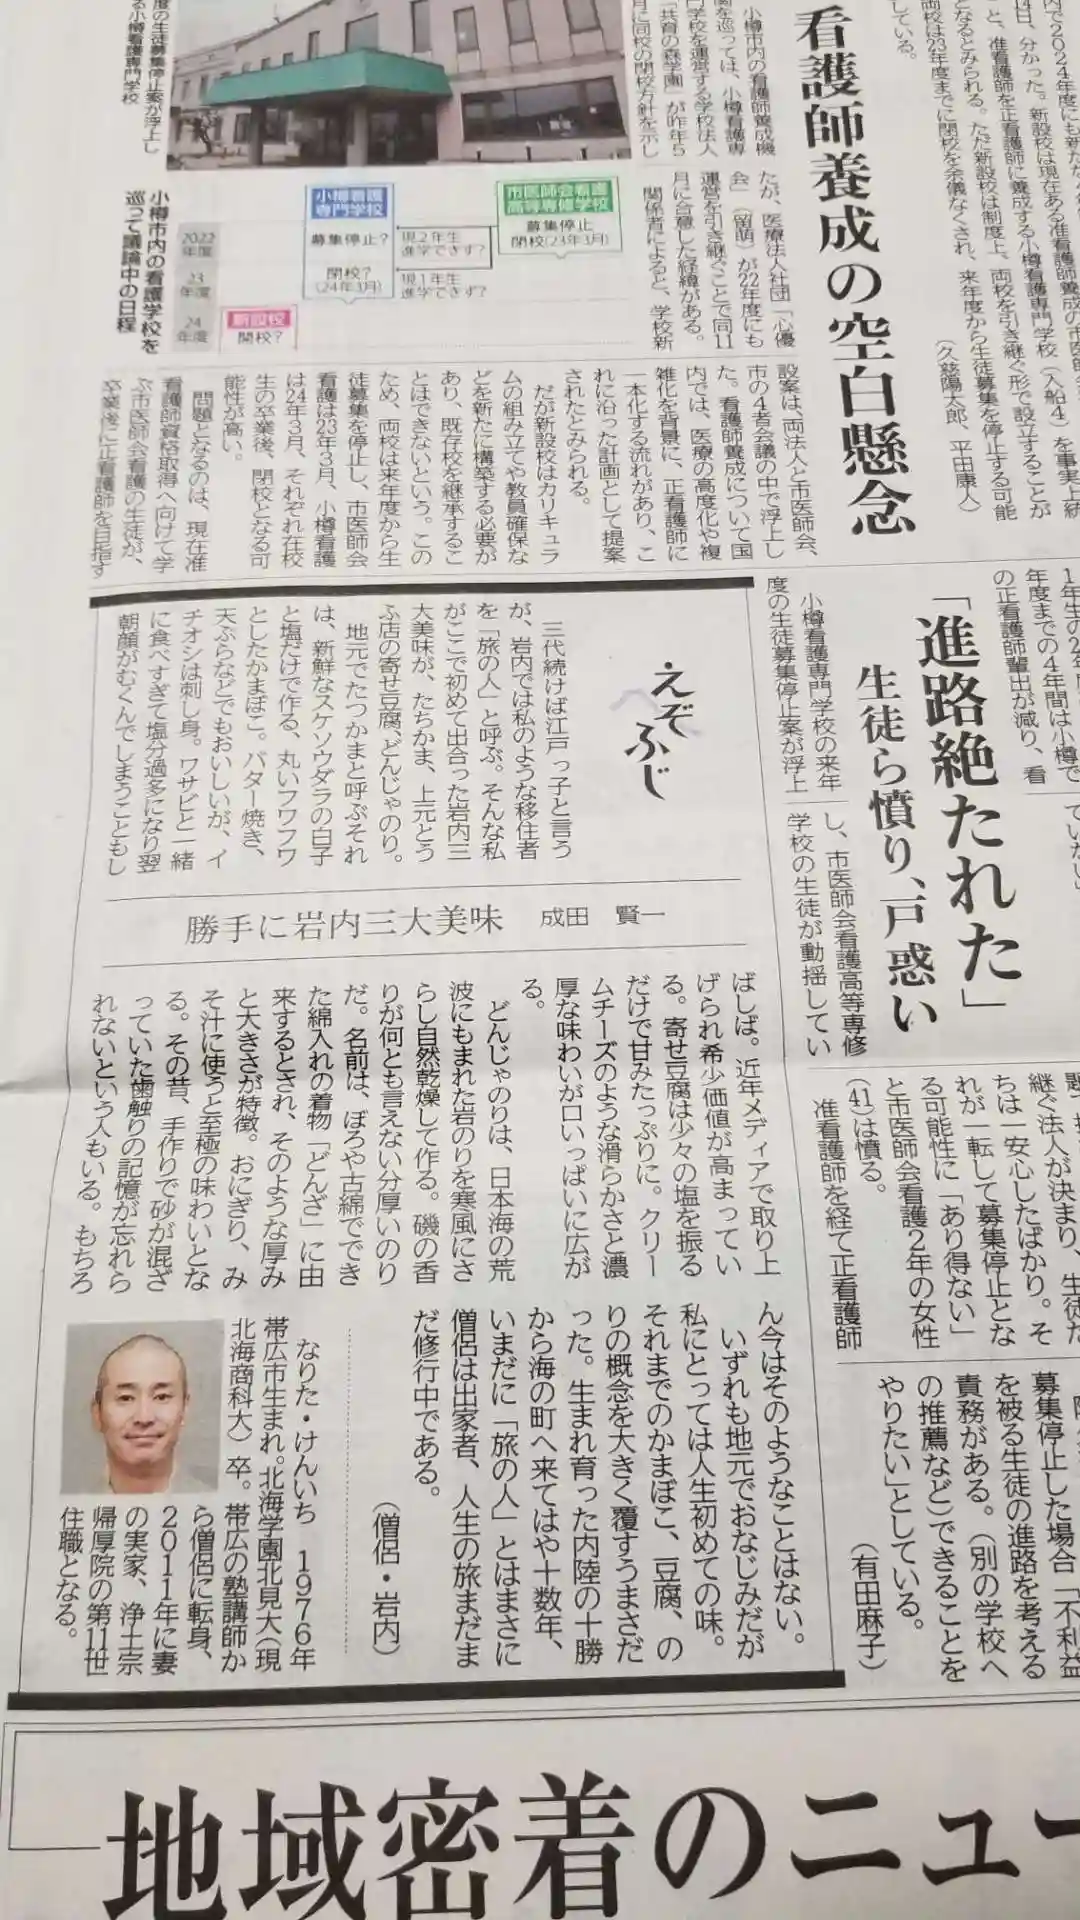 内で2024年度にも新た
14日、分かった。新設校は現在ある准看護師養成の市医師会
と、准看護師を正看護師に養成する小樽看護専門学校(入船4)を事実上統
となるとみられる。ただ新設校は制度上、両校を引き継ぐ形で設立することが
両校は23年度までに閉校を余儀なくされ、来年度から生徒募集を停止する可能
している。
(久慈陽太郎、平田康人)
看護師養成の空白懸念
小樽市内の看護師養成機
関を巡っては、小樽看護専
門学校を運営する学校法人
「共育の森学園」が昨年5
月に同校の閉校方針を示し
たが、医療法人社団「心優
会」(留萌)が22年度にも
運営を引き継ぐことで同11
月に合意した経緯がある。
関係者によると、学校新
設案は、両法人と市医師会、
市の4者会議の中で浮上し
た。看護師養成について国
内では、医療の高度化や複
雑化を背景に、正看護師に
一本化する流れがあり、こ
れに沿った計画として提案
されたとみられる。
だが新設校はカリキュラ
ムの組み立てや教員確保な
どを新たに構築する必要が
あり、既存校を継承するこ
とはできないという。この
ため、両校は来年度から生
徒募集を停止し、市医師会
看護は23年3月、小樽看護
は24年3月、それぞれ在校
生の卒業後、閉校となる可
能性が高い。
問題となるのは、現在准
看護師資格取得へ向けて学
ぶ市医師会看護の生徒が、
卒業後に正看護師を目指す
度の生徒募集停止案が浮上し
る小樽看護専門学校
小樽市内の看護学校を
巡って議論中の日程
2022
年度
23
年度
24
年度
小樽看護
専門学校
募集停止?
閉校?
(24年3月)
市医師会看護
高等専修学校
募集停止
閉校(23年3月)
現2年生
進学できず?
現1年生
進学できず?
新設校
開校?
1年生の2年
年度までの4年間は小樽で
の正看護師輩出が減り、看
ていたい」
「進路絶たれた」
生徒ら憤り、戸惑い
小樽看護専門学校の来年
度の生徒募集停止案が浮上
し、市医師会看護高等専修
学校の生徒が動揺してい
継ぐ法人が決まり、生徒た
ちは一安心したばかり。そ
れが一転して募集停止とな
る可能性に「あり得ない」
と市医師会看護2年の女性
(41)は憤る。
准看護師を経て正看護師
募集停止した場合「不利益
を被る生徒の進路を考える
責務がある。(別の学校へ
の推薦など)できることを
やりたい」としている。
(有田麻子)
えぞふじ
三代続けば江戸っ子と言う
が、岩内では私のような移住者
を「旅の人」と呼ぶ。そんな私
がここで初めて出合った岩内三
大美味が、たちかま、上元とう
ふ店の寄せ豆腐、どんじゃのり。
地元でたつかまと呼ぶそれ
は、新鮮なスケソウダラの白子
と塩だけで作る、丸いフワフワ
としたかまぼこ。バター焼き、
天ぷらなどでもおいしいが、イ
チオシは刺し身。ワサビと一緒
に食べすぎて塩分過多になり翌
朝顔がむくんでしまうこともし
勝手に岩内三大美味 成田 賢一
ばしば。近年メディアで取り上
げられ希少価値が高まってい
る。寄せ豆腐は少々の塩を振る
だけで甘みたっぷりに。クリー
ムチーズのような滑らかさと濃
厚な味わいが口いっぱいに広が
る。
どんじゃのりは、日本海の荒
波にもまれた岩のりを寒風にさ
らし自然乾燥して作る。磯の香
りが何とも言えない分厚いのり
だ。名前は、ぼろや古綿ででき
た綿入れの着物「どんざ」に由
来するとされ、そのような厚み
と大きさが特徴。おにぎり、み
そ汁に使うと至極の味わいとな
る。その昔、手作りで砂が混ざ
っていた歯触りの記憶が忘れら
れないという人もいる。もちろ
ん今はそのようなことはない。
いずれも地元でおなじみだが
私にとっては人生初めての味。
それまでのかまぼこ、豆腐、の
りの概念を大きく覆すうまさだ
った。生まれ育った内陸の十勝
から海の町へ来てはや十数年、
いまだに「旅の人」とはまさに
僧侶は出家者、人生の旅まだま
だ修行中である。
(僧侶・岩内)
なりた・けんいち 1976年
帯広市生まれ。北海学園北見大(現
北海商科大)卒。帯広の塾講師か
ら僧侶に転身、
2011年に妻
の実家、浄土宗
帰厚院の第11世
住職となる。
地域密着のニュー